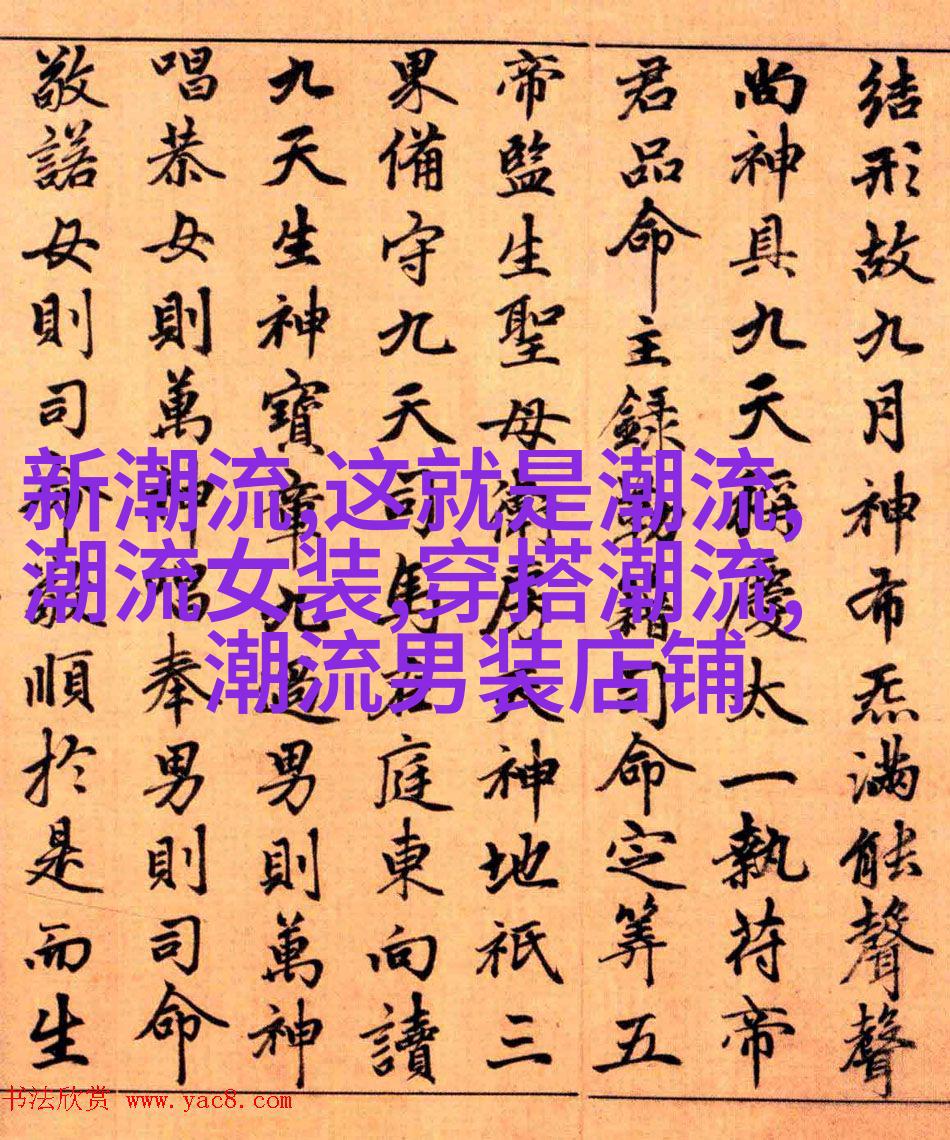 結形故九月神布炁滿能聲聲
尚神具九天稱慶太一執符帝
君品命主録勒籍司命定筭五
帝監生聖母衛房天神地祇三
果備守九天司馬在庭東向讀
九天生神寶章九過男則萬神
唱恭女則萬神唱奉男則司命
敬諾女則司命敬順於是而生
新潮流,这就是潮流,
潮流女装,穿搭潮流,
潮流男装店铺
书法欣赏 www.yac8.com